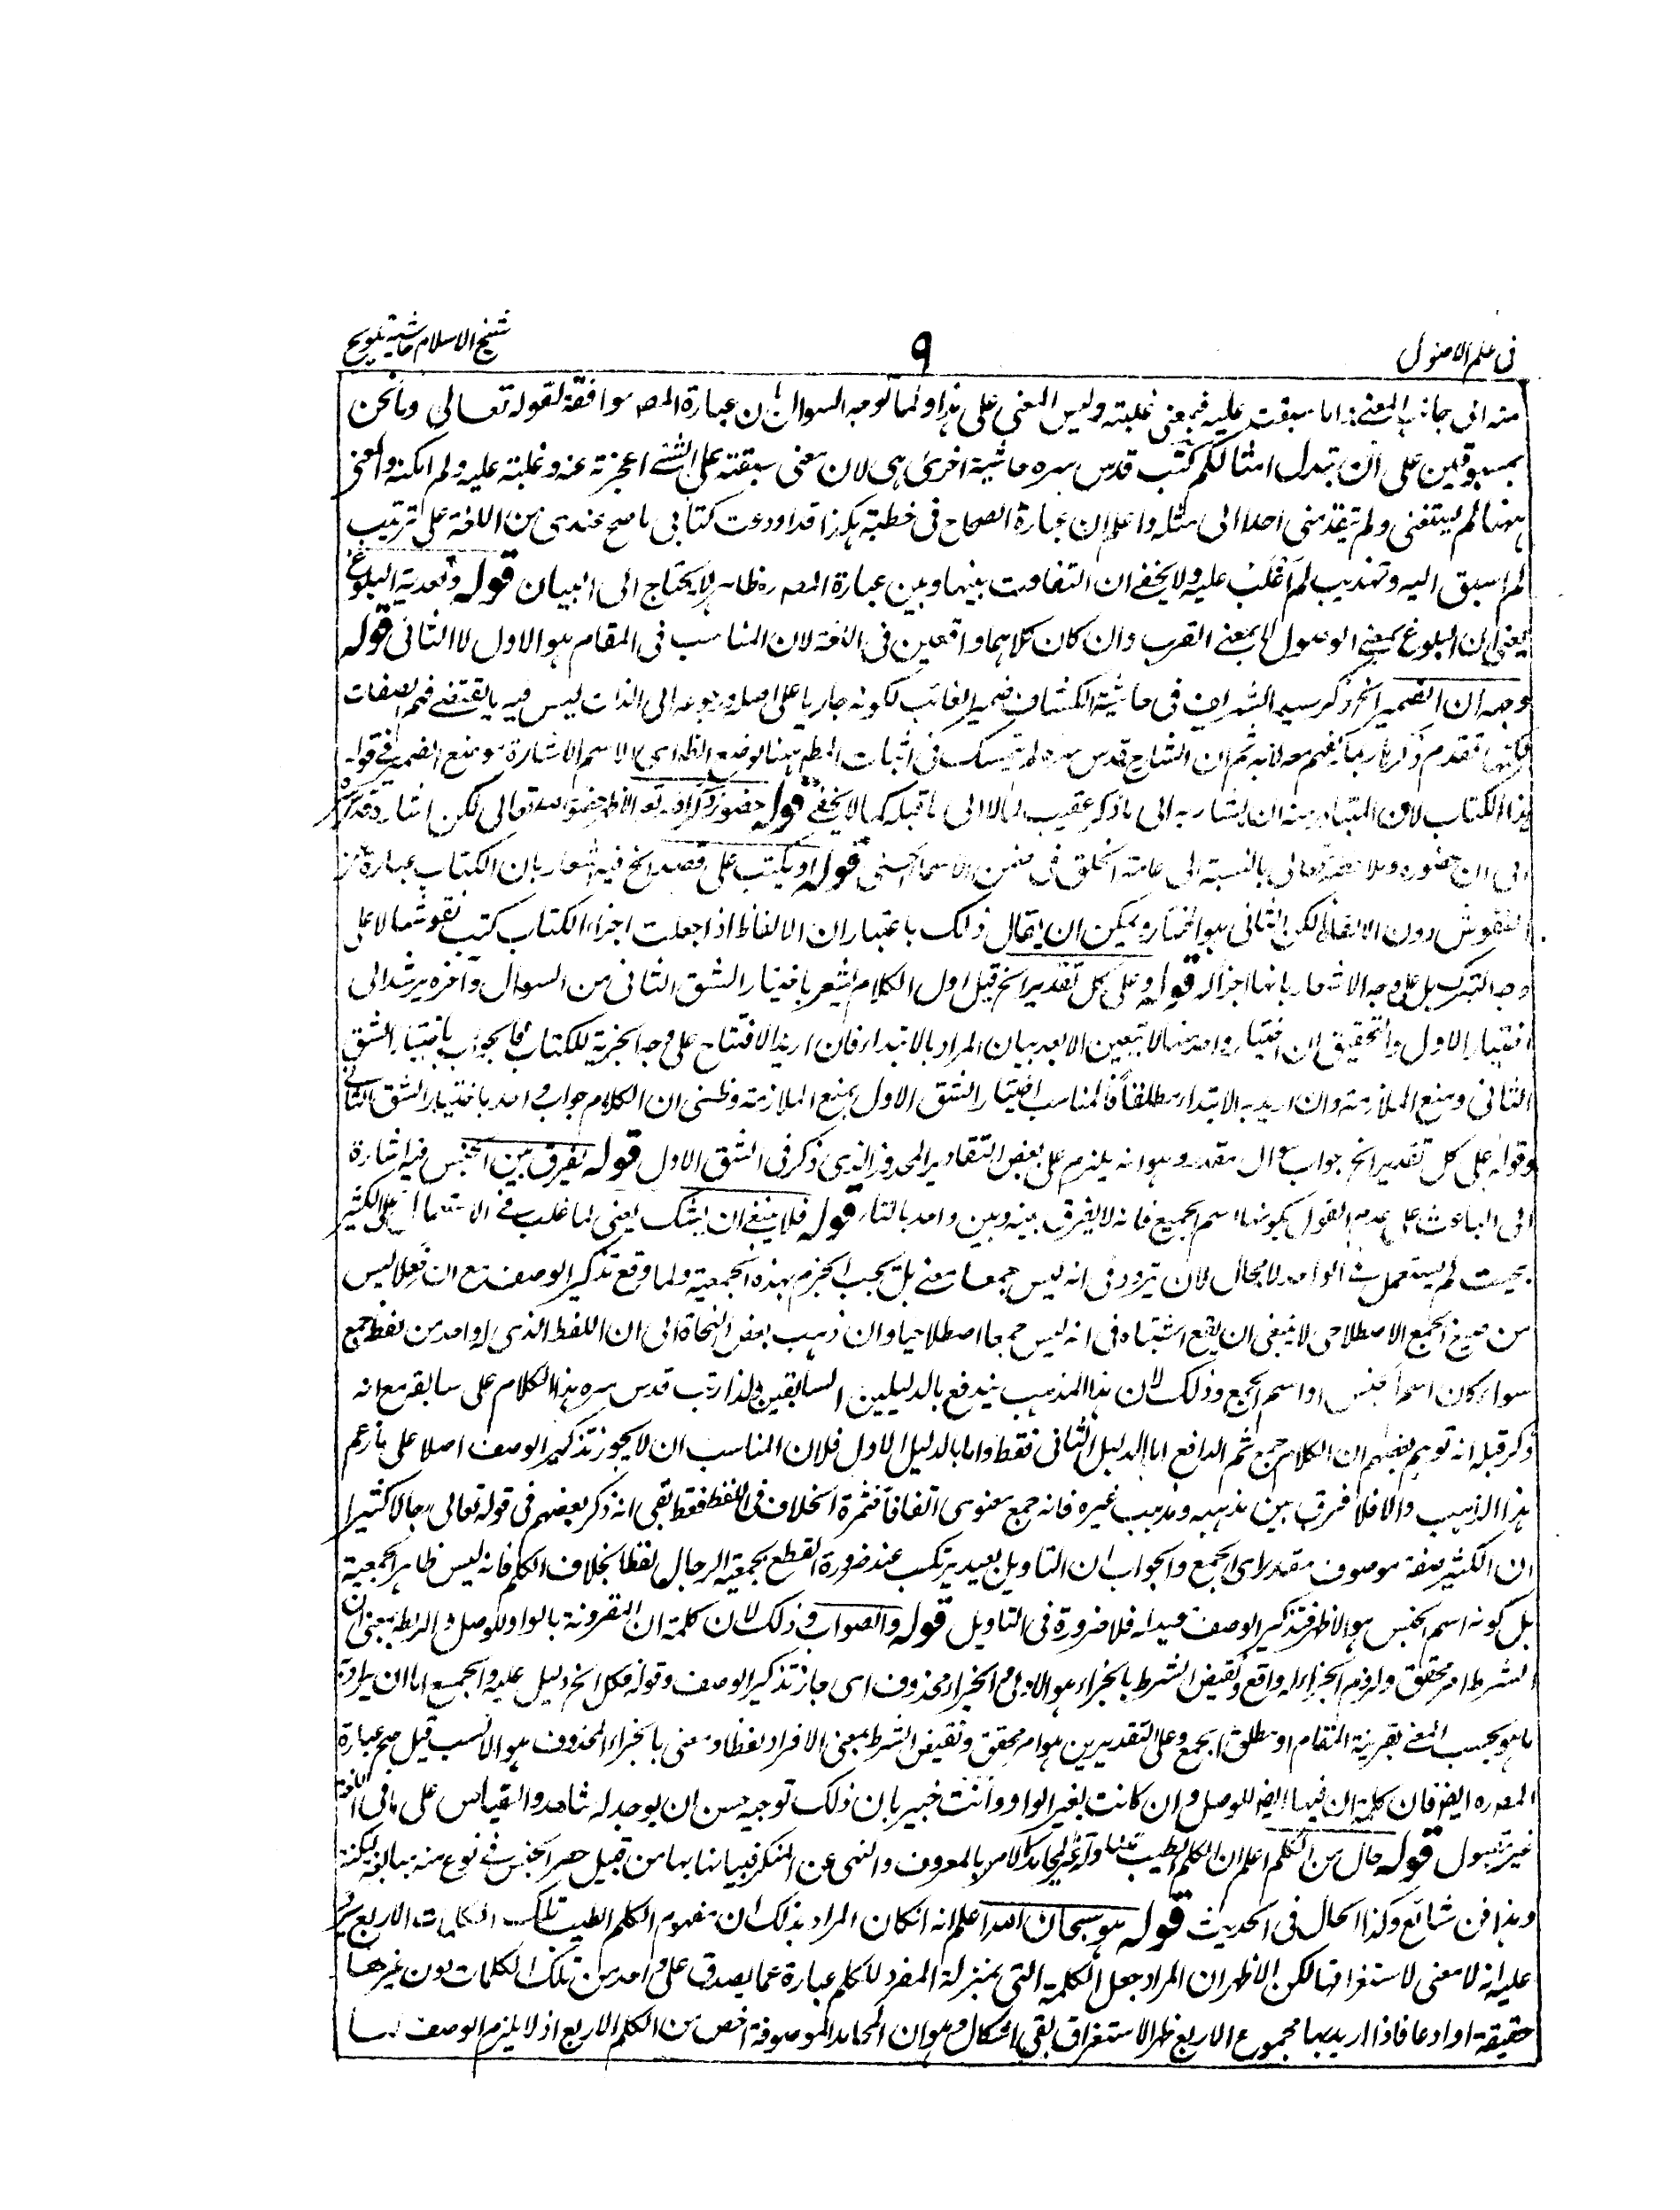 فى علم الاصول
٩
شيخ الاسلام حاشية تلويح
منه الى جانب المعنى اما سبقت عليه فبمعنى غلبته وليس المعنى على هذا ولما توجه السوال بان عبارة المصـ موافقة لقوله تعالى وما نحن
بمسبوقين على ان نبدل امثالكم كتب قدس سره حاشية اخرى هى لان معنى سبقته على الشئ اعجزته عنه وغلبته عليه ولم امكنه والمعنى
ههنا لم يسبقنى ولم يتقدمنى احد الى مثله واعلم ان عبارة الصحاح فى خطبة هكذا قد اودعت كتابى ما صح عندى من اللغة على ترتيب
لم اسبق اليه وتهذيب لم اغلب عليه ولا يخفى ان التفاوت بينها وبين عبارة المصـ ره ظاهر لا يحتاج الى البيان قوله وتعدية البلوغ
يعنى ان البلوغ بمعنى الوصول لا بمعنى القرب وان كان كلاهما واقعين فى اللغة لان المناسب فى المقام هو الاول لا الثانى قوله
وجه ان الضمير الخ ذكر سيد الشريف فى حاشية الكشاف ضمير الغائب لكونه جاريا على اصله ورجوعه الى الذات ليس فيه ما يقتضى فهم الصفات
تقدم ذكرها ربما يفهم معه لا به ثم ان الشارح قدس سره لم يتمسك فى اثبات المط ههنا لوضع الظاهر الاسم الاشارة موضع الضمير فى قوله
هذا الكتاب لان المتبادر منه ان يشار به الى ما ذكر عقيب لا الى ما قبله كما لا يخفى قوله حضوره تعالى لكن اشار
الى ان حضوره تعالى بالنسبة الى عامة الخلق فى ضمن الاسماء الحسنى قوله او يكتب على قصد الخ فيه اشعار بان الكتاب عبارة عن
النقوش دون الالفاظ لكن الثانى هو المختار ويمكن ان يقال ذلك باعتبار ان الالفاظ اذا جعلت اجزاء الكتاب كتب نقوشها لا على
وجه التبرك بل على وجه الاشعار بانها اجزاله قوله وعلى كل تقدير الخ قيل اول الكلام يشعر باختيار الشق الثانى من السوال وآخره يرشد الى
اختيار الاول والتحقيق ان اختيار واحد منها لا يتعين الا بعد بيان المراد بالابتداء فان اريد الافتتاح على وجه الجزئية للكتاب فالجواب باختيار الشق
الثانى ومنع الملازمة وان اريد به الابتداء مطلقا فالمناسب اختيار الشق الاول بمنع الملازمة وظنى ان الكلام جواب واحد باختيار الشق الثانى
وقوله على كل تقدير الخ جواب سوال مقدر وهو انه يلزم على بعض التقادير المحذور الذى ذكر فى الشق الاول قوله يفرق بين الجنس فيه اشارة
الى الباعث على عدم القول بكونها اسم الجمع فانه لا يفرق بينه وبين واحد بالتاء قوله فلا ينبغى ان يشك يعنى لما غلب فى الاستعمال على الكثير
بحيث لم يستعمل فى الواحد لا مجال لان تردد فى انه ليس جمعا معنى بل يجب الجزم بهذه الجمعية ولما وقع تذكير الوصف مع ان فعلا ليس
من صيغ الجمع الاصطلاحى لا ينبغى ان يقع اشتباه فى انه ليس جمعا اصطلاحيا وان ذهب بعض النحاة الى ان اللفظ الذى له واحد من لفظه جمع
سواء كان اسم جنس او اسم الجمع وذلك لان هذا المذهب يندفع بالدليلين السابقين ولذا رتب قدس سره هذا الكلام على سابقه مع انه
ذكر قبله انه توهم بعضهم ان الكلام جمع ثم الدافع اما الدليل الثانى فقط واما بالدليل الاول فلان المناسب ان لا يجوز تذكير الوصف اصلا على ما زعم
هذا الذاهب والا فلا فرق بين مذهبه ومذهب غيره فانه جمع معنوى اتفاقا فثمرة الخلاف فى اللفظ فقط بقى انه ذكر بعضهم فى قوله تعالى رجالا كثيرا
ان الكثير صفة موصوف مقدر اى الجمع والجواب ان التاويل بعيد يرتكب عند ضرورة القطع بجمعية الرجال لفظا بخلاف الكلم فانه ليس ظاهر الجمعية
بل كونه اسم الجنس هو الاظهر فتذكير الوصف مبداه فلا ضرورة فى التاويل قوله والصواب وذلك لان كلمة ان المقرونة بالواو للوصل والربط يعنى ان
الشرط امر محقق ولزوم الجزاء له واقع ونقيض الشرط بالجزاء هو الاولى والجزاء محذوف اى جاز تذكير الوصف وقوله فكل الخ دليل عليه والجمع اما ان يراد به
ما هو بحسب المعنى بقرينة المقام او مطلق الجمع وعلى التقديرين هو امر محقق ونقيض الشرط بمعنى الافراد لفظا ومعنى بالجزاء المحذوف هو الانسب قيل صح عبارة
المصـ ره ايضا فان كلمة ان فيها ايضا للوصل وان كانت بغير الواو وانت خبير بان ذلك توجيه حسن ان يوجد له شاهد والقياس على ما فى اللغة
غير مقبول قوله حال من الكلم اعلم ان الكلم الطيب كالامر بالمعروف والنهى عن المنكر فبيانها بها من قبيل حصر الجنس فى نوع منه مبالغة لنكتة
وهذا فن شائع وكذا الحال فى الحديث قوله هو سبحان الله اعلم انه ان كان المراد بذلك ان مفهوم الكلم الطيب تلك الكلمات الاربع يرد
عليه انه لا معنى لاستغراقها لكن الاظهر ان المراد جعل الكلمة التى بمنزلة المفرد للكلم عبارة عما يصدق على واحد من تلك الكلمات دون غيرها
حقيقة او ادعا فاذا اريد بها مجموع الاربع ظهر الاستغراق بقى اشكال وهو ان المحامد الموصوفة اخص من الكلم الاربع اذ لا يلزم الوصف